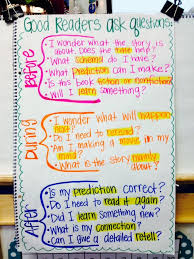 Good Readers ask questions:
Before
I wonder what the story is
about. Does the title help?
What schema do I have?
What Prediction can I make?
Is this book fiction or nonfiction?
Will I learn something?
During
I wonder what will happen
next?
Do I need to reread?
Am I making a movie in my
mind?
What is the story mainly
about?
After
Is my prediction correct?
Do I need to read it again?
Did I learn something new?
What is my connection?
Can I give a detailed retell?